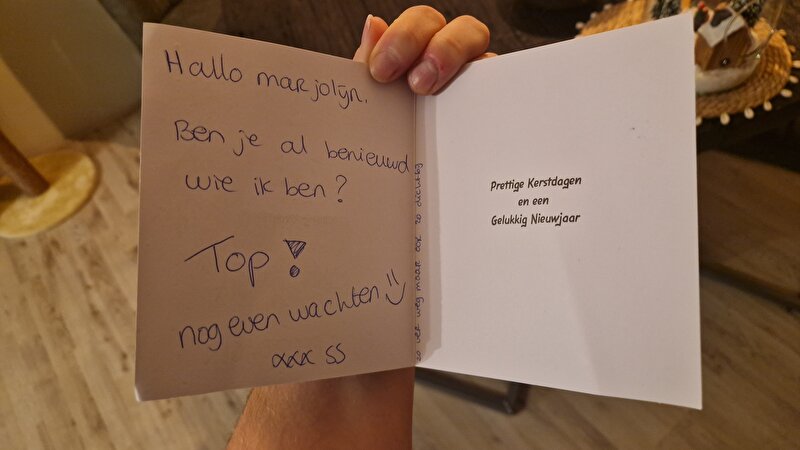 Hallo marjolijn.
Ben je al benieuwd
wie ik ben?
Top!
nog even wachten :)
xxx SS
zo ver weg maar ook zo dichtbij
Prettige Kerstdagen
en een
Gelukkig Nieuwjaar